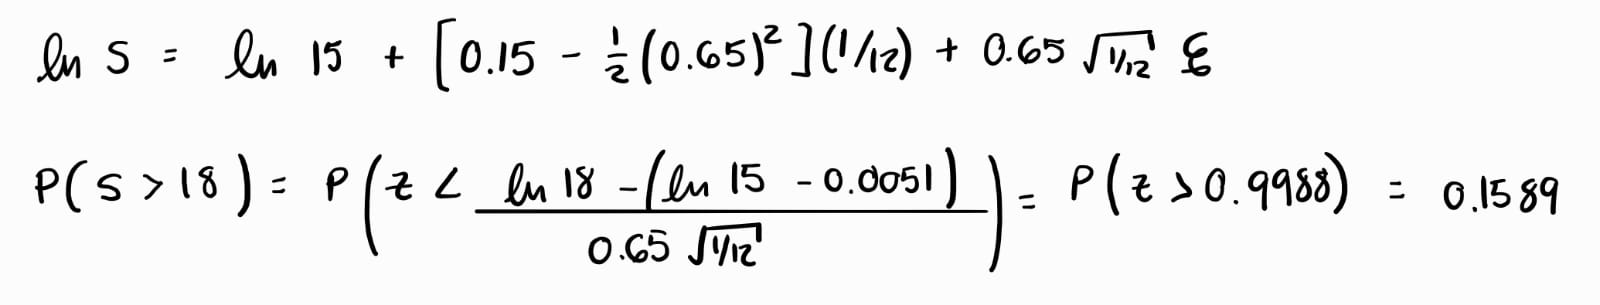 ln S = ln 15 + [0.15 - ½(0.65)²](1/12) + 0.65 √(1/12) ε
P(S > 18) = P(z < (ln 18 - (ln 15 - 0.0051)) / (0.65 √(1/12))) = P(z > 0.9988) = 0.1589